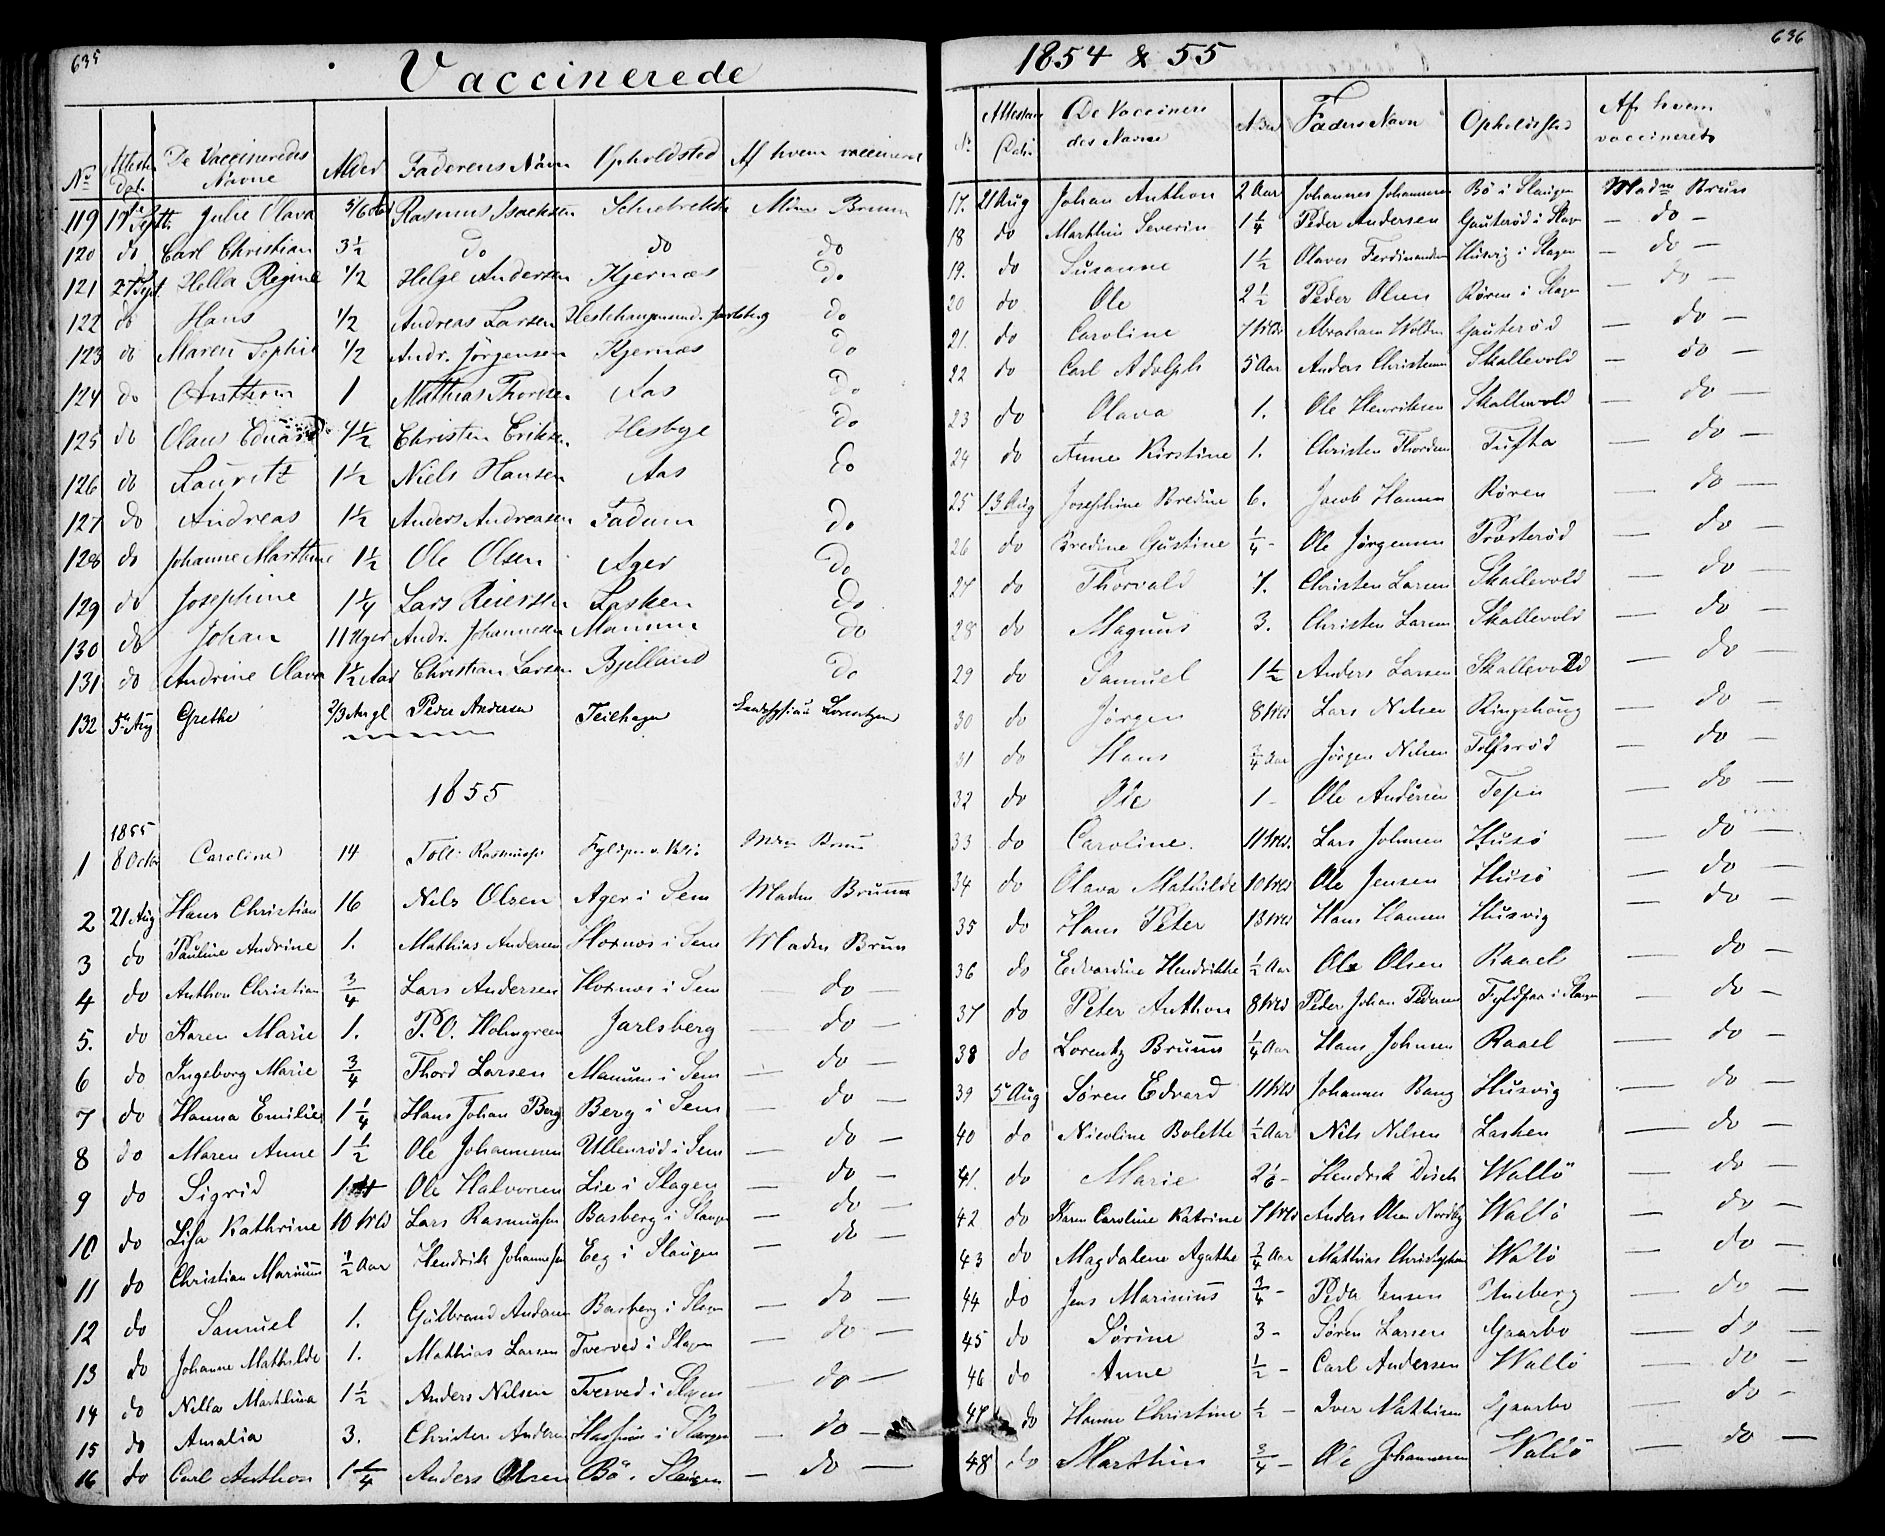 635
Vaccinerede
No Attests Dat. De Vaccineredes Navne Alder Faderens Navn Opholdsted Af hvem vaccineret
119 19 Sept. Julie Olava 5/6 Rasmus Isachsen Mdme Bruun
120 do Carl Christian 3 1/2 do do do
121 27 Sept. Hella Regine 1/2 Helge Andersen Kjernæs do
122 do Hans 1/2 Andreas Larsen do
123 do Maren Sophie 1/2 Andr. Jörgensen Kjernæs do
124 do Anthon 1 Mathias Thorsen Aas do
125 do Olaus Eduard 4 1/2 Christen Eriksen Hesbye do
126 do Lauritz 1 1/2 Niels Hansen Aas do
127 do Andreas 1 1/2 Anders Andreasen Fadum do
128 do Johanne Marthine 1 1/2 Ole Olsen Ager do
129 do Josephine 1 1/4 Lars Reiersen Lasken do
130 do Johan 11 Uger Andr. Johannesen Manum do
131 do Andrine Olava 1 1/2 Aar Christian Larsen Bjelland do
132 5te Aug Grethe 2/3 Peder Andersen Teiehagen Lorentzen
1855
1855
1 8 Octbr Caroline 14 Rasmussen Mdm Bruun
2 21 Aug Hans Christian 16 Nils Olsen Ager i Sem Madm Bruun
3 do Pauline Andrine 1. Mathias Andersen Hornæs i Sem Madm Bruun
4 do Anthon Christian 3/4 Lars Andersen Hornæs i Sem — do
5. do Karen Marie 1. P. O. Holmgreen Jarlsberg — do —
6 do Ingeborg Marie 3/4 Thord Larsen Manum i Sem — do —
7 do Hanna Emilie 1 1/4 Hans Johan Berg Berg i Sem — do —
8 do Maren Anne 1 1/2 Ole Johannesen Ullenrød i Sem — do —
9 do Sigrid 1 Ole Halvorsen Lie i Slagen — do —
10 do Lisa Kathrine 10 Mdr Lars Rasmussen Basberg i Slagen — do —
11 do Christian Marinius 1/2 Aar Hendrik Johannesen Eeg i Slagen — do —
12 do Samuel 1. Gulbrand Andersen Basberg i Slagen — do —
13 do Johanne Mathilde 1. Mathias Larsen Tverved i Slagen — do —
14 do Nilla Marthina 1 1/2 Anders Nilsen Tverved i Slagen — do —
15 do Amalia 3. Christen Andersen i Slagen — do —
16 do Carl Anthon 1 1/4 Anders Olsen Bö i Slagen — do —
636
1854 & 55
No Attestens Dato De Vaccineredes Navne Alder Faders Navn Opholdssted Af hvem vaccineret
17. 21 Aug Johan Anthon 2 Aar Johannes Johannesen Bö i Slagen Madm Bruun
18 do Marthin Severin 1 1/4 Peder Andersen Gauterød i Slagen — do —
19. do Susanne 1 1/2 Olaves Ferdinandsen Husvig i Slagen — do —
20 do Ole 2 1/2 Peder Olsen Røren i Slagen — do —
21. do Caroline 7 Mdr Abraham Gauterød — do —
22 do Carl Adolph 5 Aar Anders Christensen Skallevold — do —
23 do Olava 1. Ole Henriksen Skallevold — do —
24 do Anne Kirstine 1. Christen Thordsen Tufta — do —
25 13 Aug Josephine Bredine 6. Jacob Hansen Røren — do —
26 do Bredine Gustine 1/4 - Ole Jørgensen Præsterød — do —
27 do Thorvald 7. Christen Larsen Skallevold — do —
28 do Magnus 3. Christen Larsen Skallevold — do —
29 do Samuel 1 1/2 Anders Larsen Skallevold — do —
30 do Jørgen 8 Mdr Lars Nilsen Ringshoug — do —
31 do Hans 3/4 Aar Jørgen Nilsen Tolfsrød — do —
32 do Ole 1 - Ole Andersen — do —
33 do Caroline. 11 Mdr. Lars Johnsen Husø — do —
34 do Olava Mathilde 10 Mdr Ole Jensen Husø — do —
35 do Hans Peter 13 Mdr Hans Hansen Husvig — do —
36 do Edvardine Hendrikke 1/2 Aar Ole Olsen Raael — do —
37 do Peter Anthon 8 Mdr Peder Johan Pedersen i Slagen — do —
38 do Lorentz Bruun 1/4 Aar Hans Johnsen Raael — do —
39 5te Aug Søren Edvard 11 Mdr Johannes Bang Husvig — do —
40 do Nicoline Bolette 1/2 Aar Nils Nilsen Lasken — do —
41. do Marie 26 - Hendrik Disch Wallö — do —
42 do Karen Caroline Katrine 7 Mdr Anders Olsen Nordby Wallö — do —
43 do Magdalene Agathe 3/4 Aar Mathias Christophersen Wallö — do —
44 do Jens Marinius 3/4 - Peder Jensen Tuneberg — do —
45 do Sørine 3 - Søren Larsen Gaarbo — do —
46 do Anne 1/2 - Carl Andersen Wallö — do —
47 do Hanne Christine 1/2 - Iver Mathisen Gaarbo — do —
48 do Marthin 3/4 - Ole Johannesen Wallö — do —